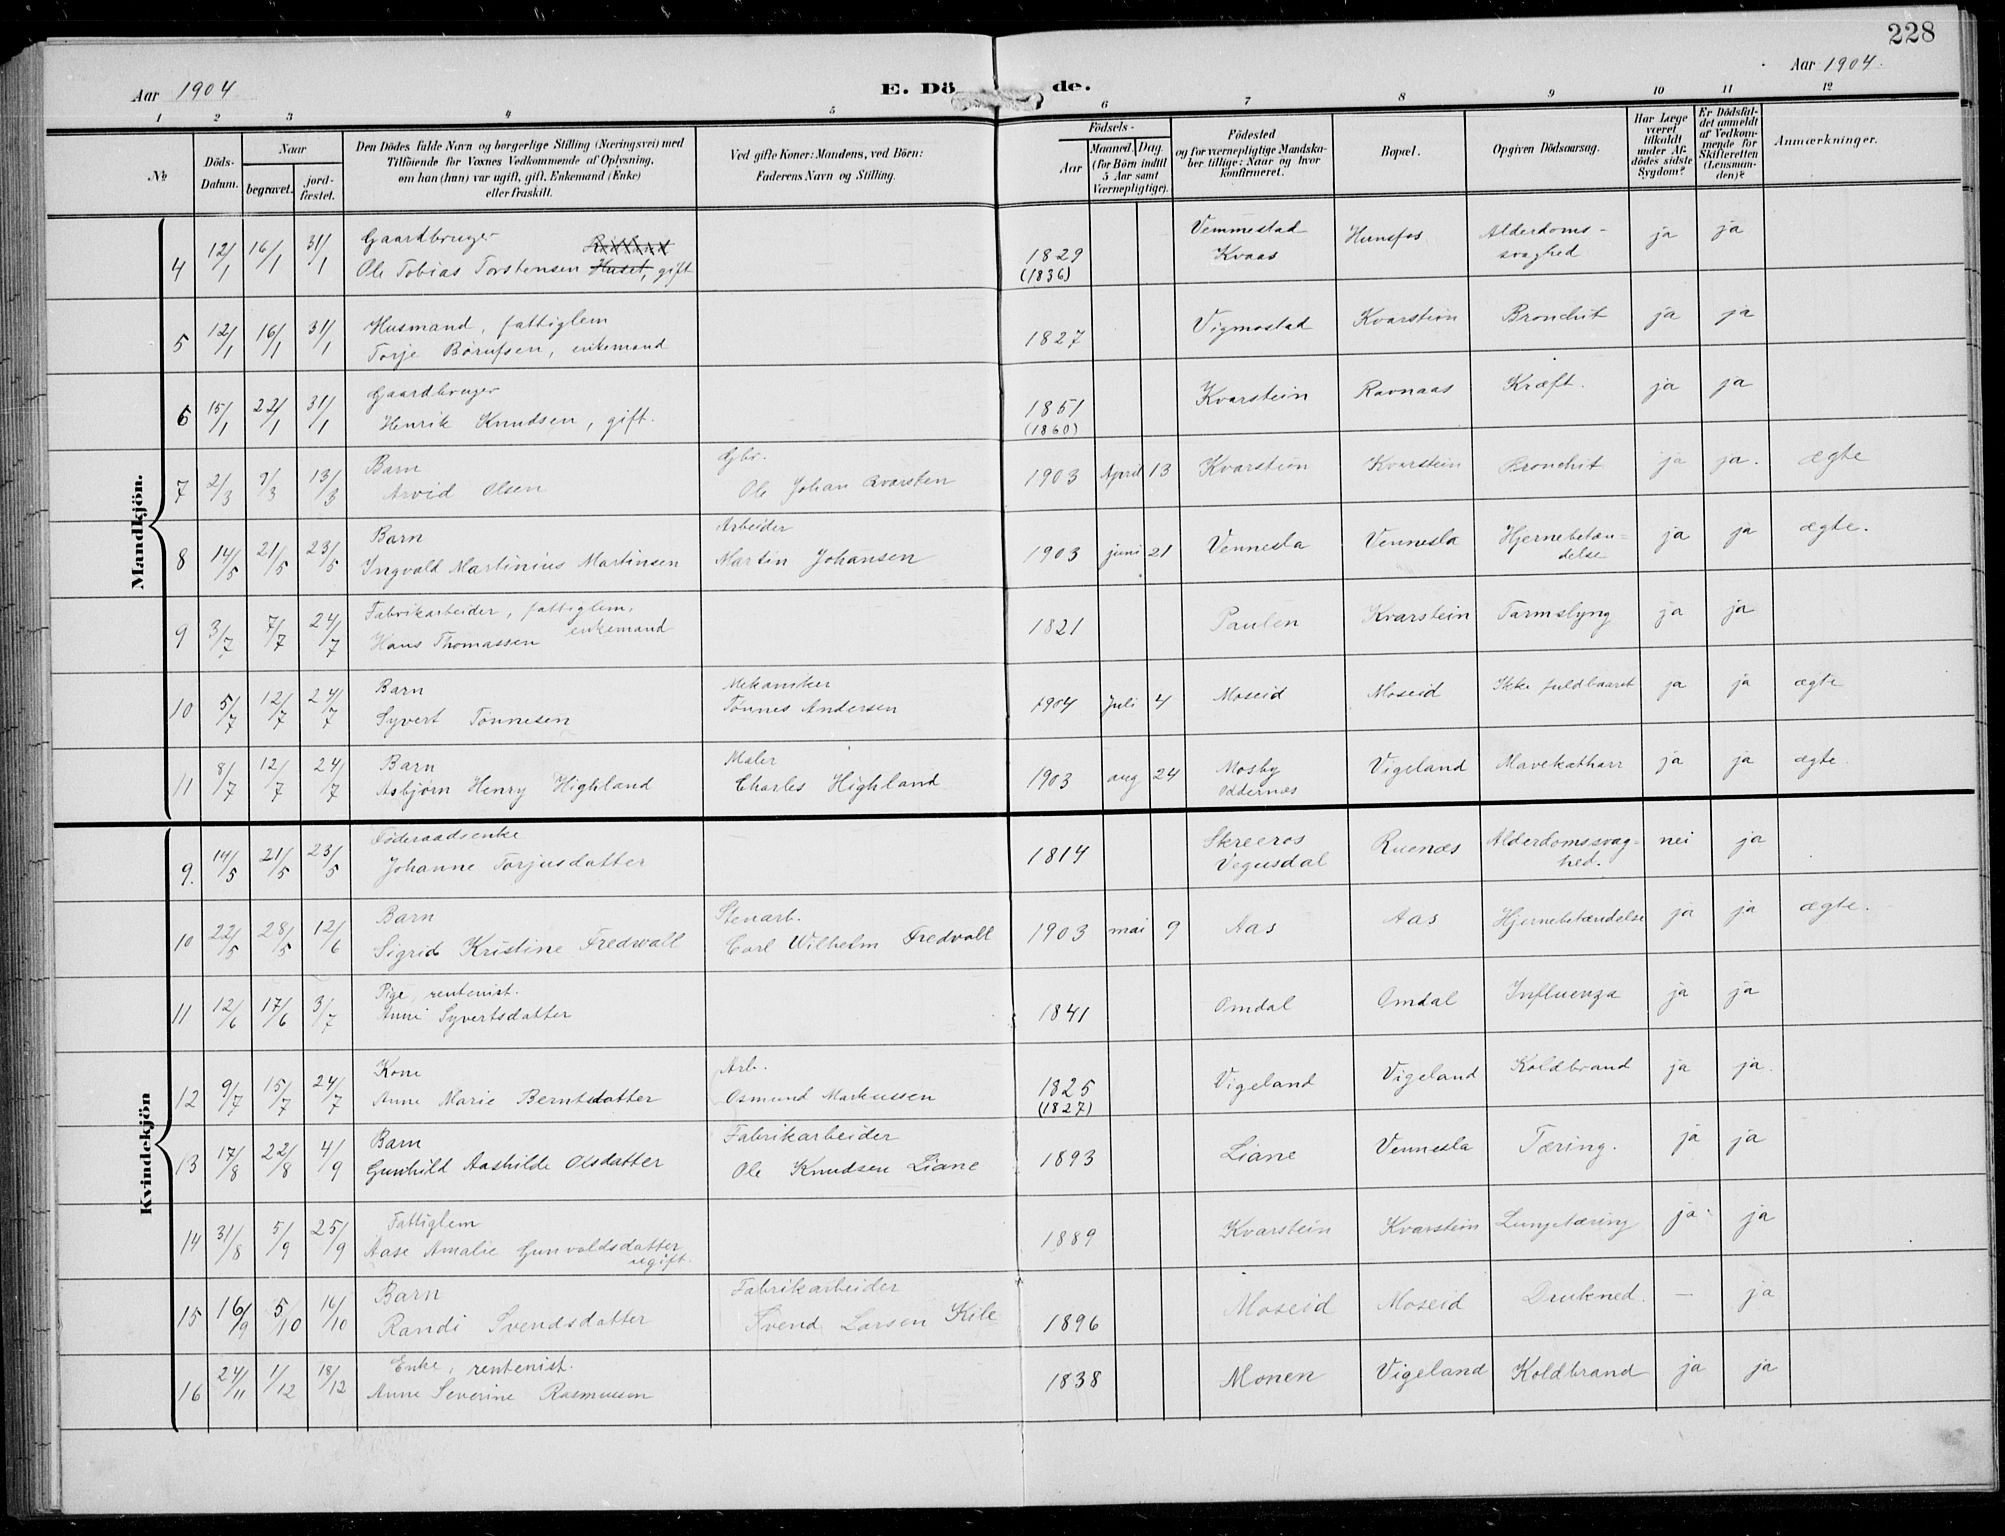 228
Aar 1904
E. Dö
de.
Aar 1904.
1 2 3 4 5 6 7 8 9 10 11 12
No
Döds-
Datum.
Naar
begravet.
jord-
fæstet.
Den Dödes fulde Navn og borgerlige Stilling (Næringsvei) med
Tilföiende for Voxnes Vedkommende af Oplysning,
om han (hun) var ugift, gift, Enkemand (Enke)
eller fraskilt.
Ved gifte Koner: Mandens, ved Börn:
Faderens Navn og Stilling.
Födsels-
Aar
Maaned. Dag.
(for Börn indtil
5 Aar samt
Værnepligtige).
Födested
og for værnepligtige Mandska-
ber tillige: Naar og hvor
konfirmeret.
Bopæl.
Opgiven Dödsaarsag.
Har Læge
været
tilkaldt
under Af-
dödes sidste
Sygdom?
Er Dödsfal-
det anmeldt
af Vedkom-
mende for
Skifteretten
(Lensman-
den)?
Anmærkninger.
Mandkjön.
4 12/1 16/1 31/1 Gaardbruger
Ole Tobias Torstensen Huset, gift 1829 (1836) Vemmestad Kvaas Hunsfos Alderdoms-svaghed ja ja
5 12/1 16/1 31/1 Husmand, fattiglem
Torje Børufsen, enkemand 1827 Vigmostad Kvarstein Bronchit ja ja
6 15/1 22/1 31/1 Gaardbruger
Henrik Knudsen, gift. 1851 (1860) Kvarstein Ravnaas Kræft. ja ja
7 2/3 9/3 13/3 Barn
Arvid Olsen Gbr. Ole Johan Kvarsten 1903 April 13 Kvarstein Kvarstein Bronchit ja ja. ægte
8 14/5 21/5 23/5 Barn
Ingvald Martinius Martinsen Arbeider Martin Johansen 1903 juni 21 Vennesla Vennesla Hjernebetæn-delse ja ja ægte.
9 3/7 7/7 24/7 Fabrikarbeider, fattiglem,
Hans Thomassen enkemand 1821 Paulen Kvarstein Tarmslyng ja ja
10 5/7 12/7 24/7 Barn
Syvert Tønnesen Mekaniker Tønnes Andersen 1904 juli 4 Moseid Moseid Ikke fuldbaaret ja ja ægte
11 8/7 12/7 24/7 Barn
Asbjørn Henry Highland Maler Charles Highland 1903 aug 24 Mosby Oddernes Vigeland Mavekatharr ja ja ægte.
Kvindekjön
9. 14/5 21/5 23/5 Føderaadsenke
Johanne Torjusdatter 1814 Skreeros Vegusdal Ruenæs Alderdomssvag-hed. nei ja
10 22/5 28/5 12/6 Barn
Sigrid Kristine Fredwall Stenarb. Carl Wilhelm Fredvall 1903 mai 9 Aas Aas Hjernebetændelse ja ja ægte.
11 12/6 17/6 3/7 Pige, rentenist.
Anne Syvertsdatter 1841 Omdal Omdal Influenza ja ja
12 9/7 15/7 24/7 Kone
Anne Marie Berntsdatter Arb. Osmund Markussen 1825 (1827) Vigeland Vigeland Koldbrand ja ja.
13 17/8 22/8 4/9 Barn
Gunhild Aashilde Olsdatter Fabrikarbeider Ole Knudsen Liane 1893 Liane Vennesla Tæring. ja ja
14 31/8 5/9 25/9 Fattiglem
Aase Amalie Gunvaldsdatter ugift. 1889 Kvarstein Kvarstein Lungetæring ja ja
15 16/9 5/10 16/10 Barn
Randi Svendsdatter Fabrikarbeider Svend Larsen Kile 1896 Moseid Moseid Drukned. — ja
16 24/11 1/12 18/12 Enke, rentenist.
Anne Severine Rasmussen 1838 Monen Vigeland Koldbrand ja ja